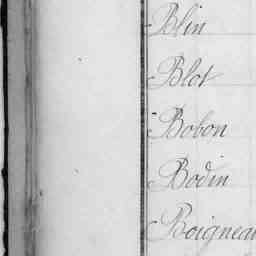 Blin
Blot
Bobon
Bodin